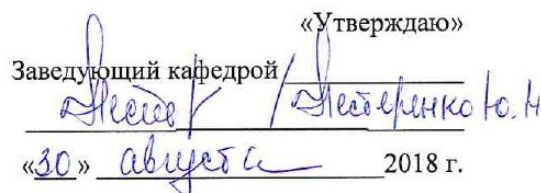 «Утверждаю»
Заведующий кафедрой
/ Нестеренко Ю. Н
«30» августа 2018 г.